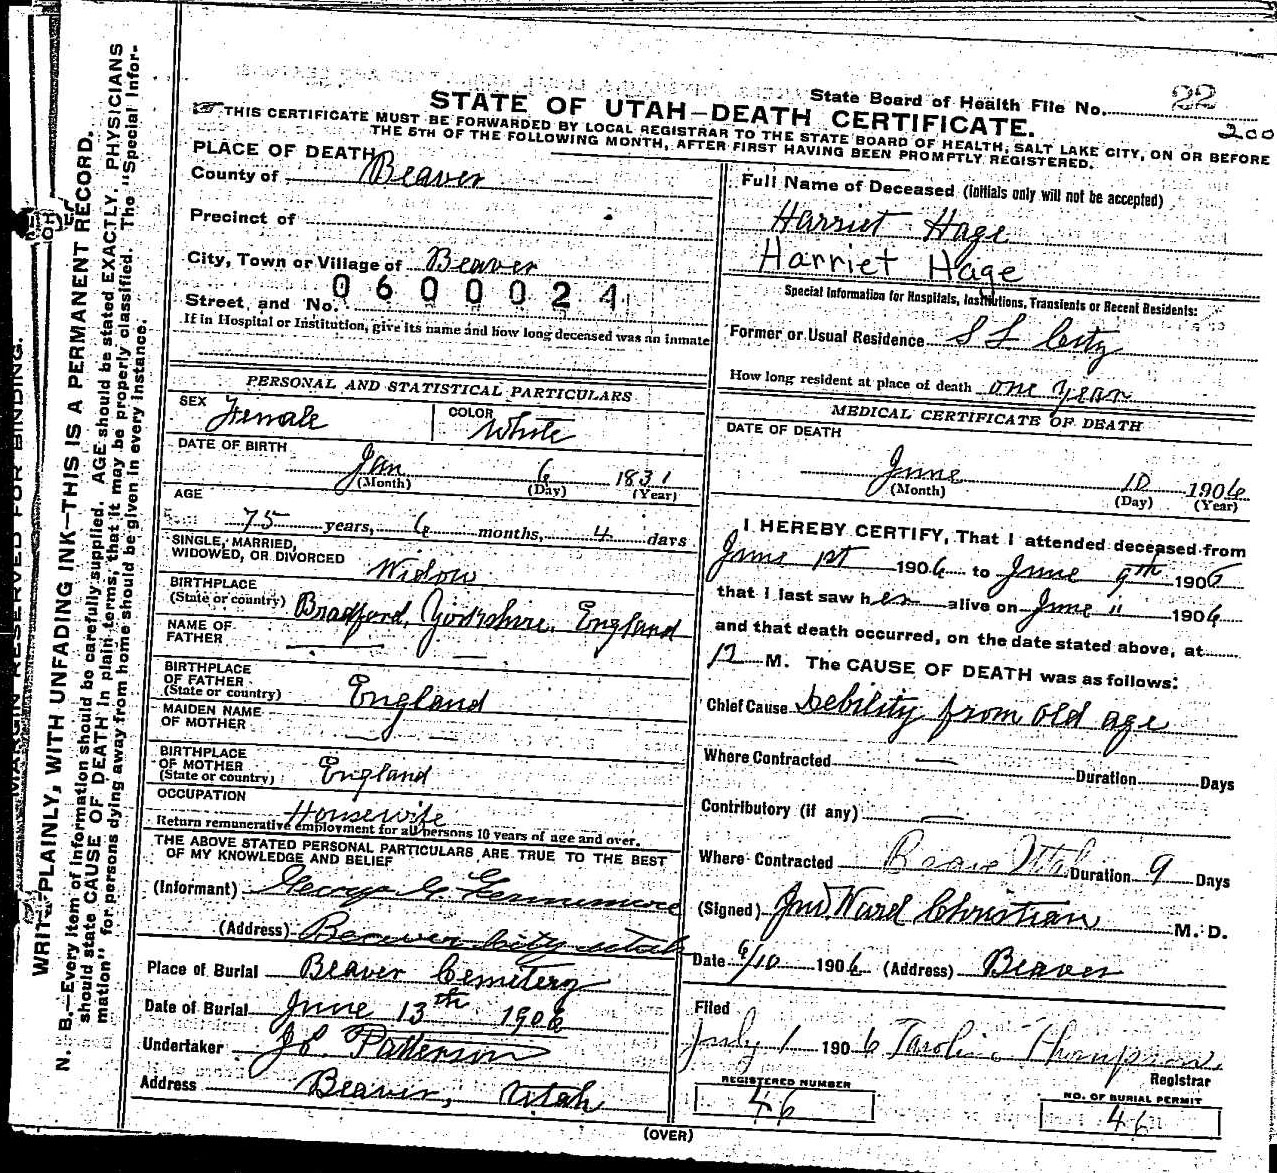 State Board of Health File No. 22
200
STATE OF UTAH—DEATH CERTIFICATE.
THIS CERTIFICATE MUST BE FORWARDED BY LOCAL REGISTRAR TO THE STATE BOARD OF HEALTH, SALT LAKE CITY, ON OR BEFORE
THE 5TH OF THE FOLLOWING MONTH, AFTER FIRST HAVING BEEN PROMPTLY REGISTERED.
MARGIN RESERVED FOR BINDING.
WRITE PLAINLY, WITH UNFADING INK—THIS IS A PERMANENT RECORD.
N. B.—Every item of information should be carefully supplied. AGE should be stated EXACTLY. PHYSICIANS
should state CAUSE OF DEATH in plain terms, that it may be properly classified. The "Special Infor-
mation" for persons dying away from home should be given in every instance.
PLACE OF DEATH
County of Beaver
Precinct of
City, Town or Village of Beaver
0600024
Street, and No.
If in Hospital or Institution, give its name and how long deceased was an inmate
PERSONAL AND STATISTICAL PARTICULARS
SEX Female COLOR White
DATE OF BIRTH
Jan 6 1831
(Month) (Day) (Year)
AGE
75 years, 6 months, 4 days
SINGLE, MARRIED,
WIDOWED, OR DIVORCED Widow
BIRTHPLACE
(State or country) Bradford, Yorkshire, England
NAME OF
FATHER — —
BIRTHPLACE
OF FATHER
(State or country) England
MAIDEN NAME
OF MOTHER — —
BIRTHPLACE
OF MOTHER
(State or country) England
OCCUPATION
Housewife
Return remunerative employment for all persons 10 years of age and over.
THE ABOVE STATED PERSONAL PARTICULARS ARE TRUE TO THE BEST
OF MY KNOWLEDGE AND BELIEF
(Informant) George
(Address) Beaver City Utah
Place of Burial Beaver Cemetery
Date of Burial June 13th 1906
Undertaker Patterson
Address Beaver, Utah
Full Name of Deceased (Initials only will not be accepted)
Harriet Hage
Harriet Hage
Special Information for Hospitals, Institutions, Transients or Recent Residents:
Former or Usual Residence S L City
How long resident at place of death one year
MEDICAL CERTIFICATE OF DEATH
DATE OF DEATH
June 10 1906
(Month) (Day) (Year)
I HEREBY CERTIFY, That I attended deceased from
June 1st 1906 to June 9th 1906
that I last saw her alive on June 11 1906
and that death occurred, on the date stated above, at
12 M. The CAUSE OF DEATH was as follows:
Chief Cause Debility from old age
Where Contracted — Duration Days
Contributory (if any) —
Where Contracted Utah Duration 9 Days
(Signed) Jno Ward Christian M. D.
Date 6/10 1906 (Address) Beaver
Filed
July 1 1906 Thompson,
Registrar
REGISTERED NUMBER
46
NO. OF BURIAL PERMIT
46
(OVER)